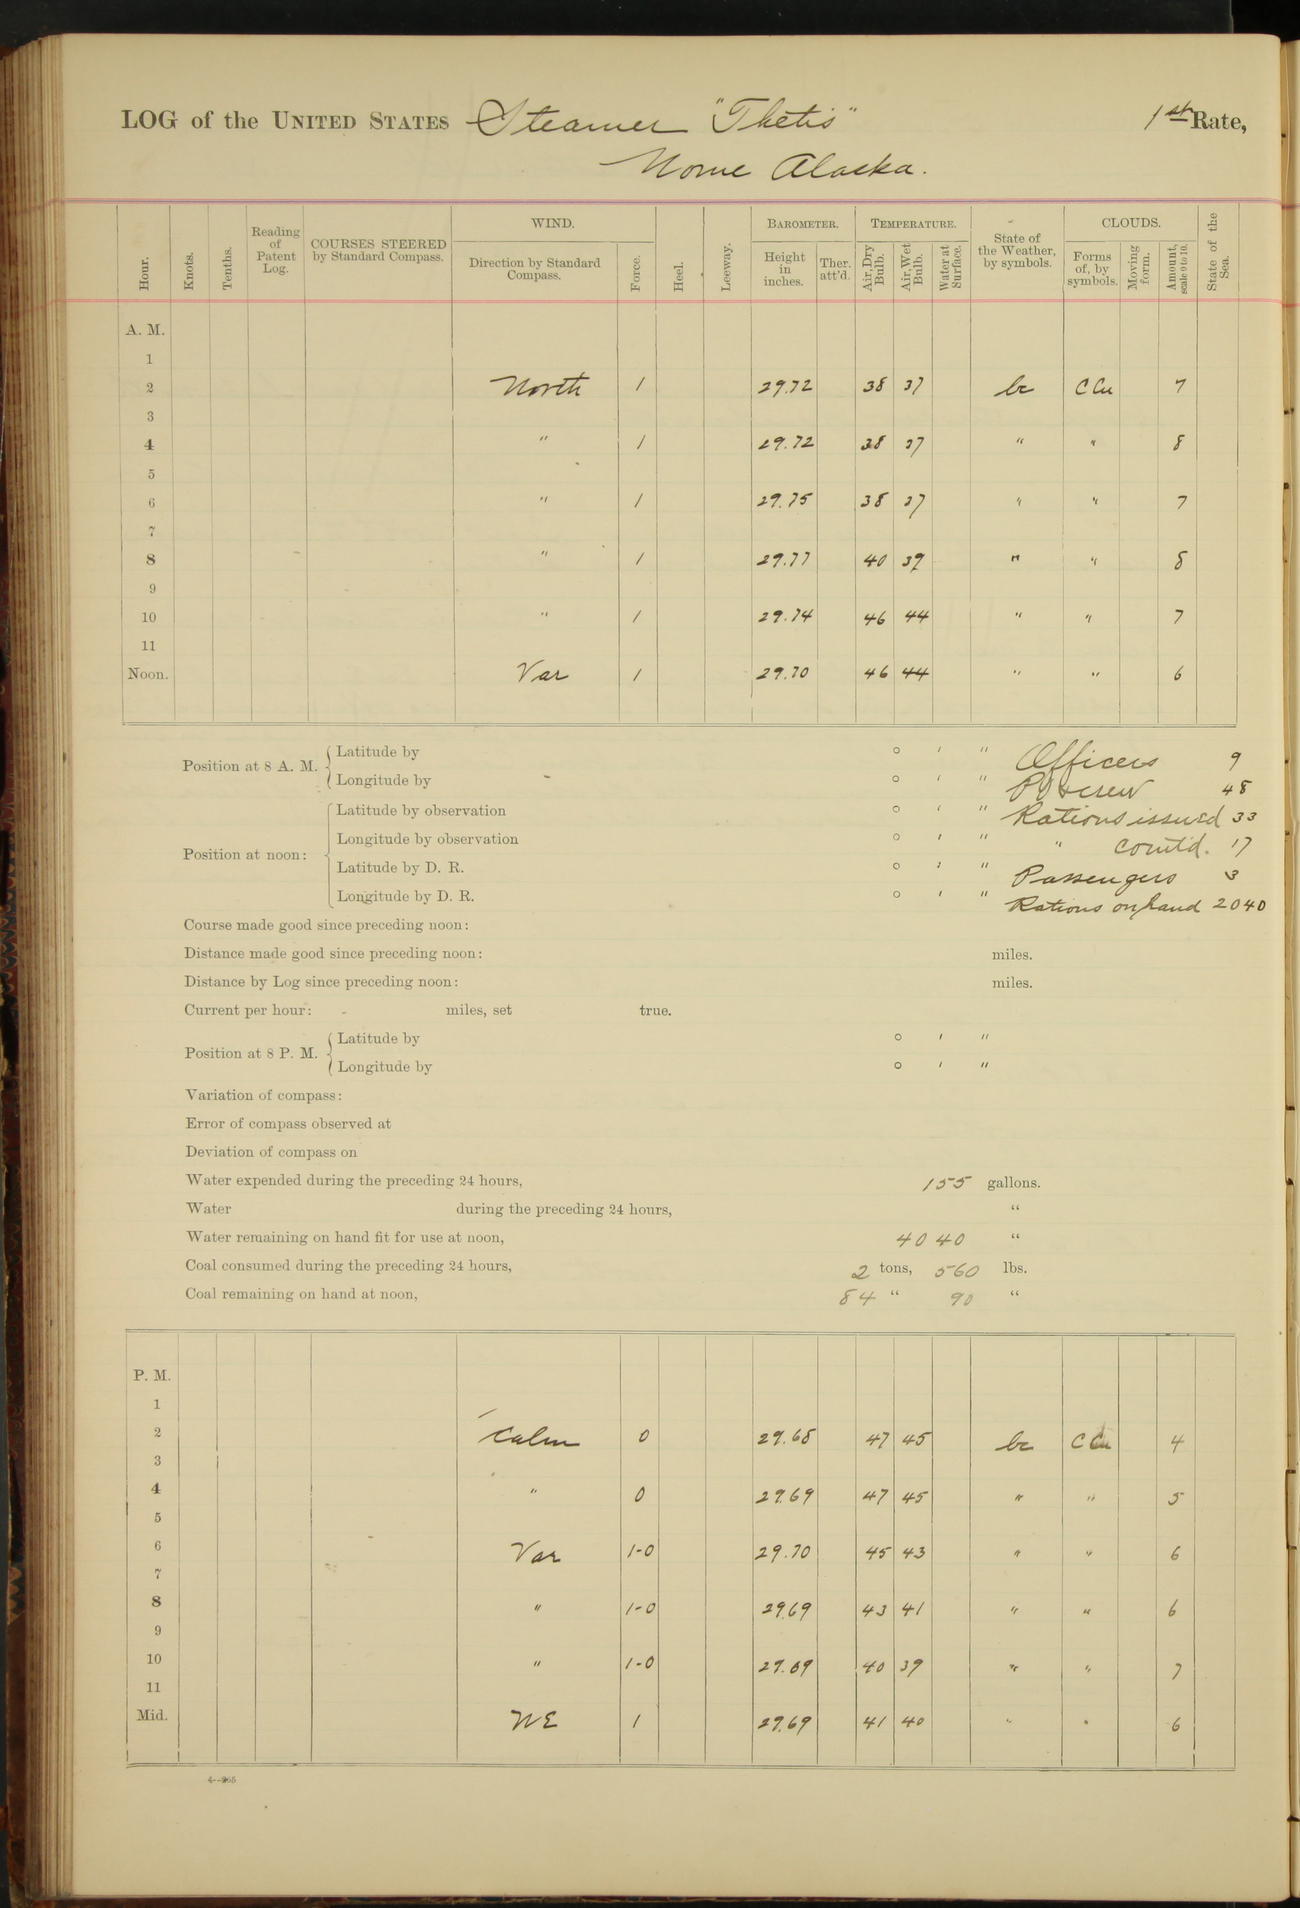 LOG of the UNITED STATES Steamer "Thetis" 1st Rate,
Nome Alaska.
Hour. Knots. Tenths. Reading of Patent Log. COURSES STEERED by Standard Compass. WIND. Direction by Standard Compass. Force. Heel. Leeway. BAROMETER. Height in inches. Ther. att'd. TEMPERATURE. Air, Dry Bulb. Air, Wet Bulb. Water at Surface. State of the Weather, by symbols. CLOUDS. Forms of, by symbols. Moving form. Amount, scale 0 to 10. State of the Sea.
A. M.
1
2 North 1 29.72 38 37 bc C Cu 7
3
4 " 1 29.72 38 37 " " 8
5
6 " 1 29.75 38 37 " " 7
7
8 " 1 29.77 40 39 " " 8
9
10 " 1 29.74 46 44 " " 7
11
Noon. Var 1 29.70 46 44 " " 6
Position at 8 A. M. Latitude by ° ' " Officers 9
Longitude by ° ' " PO & crew 48
Position at noon: Latitude by observation ° ' " Rations issued 33
Longitude by observation ° ' " " comt'd. 17
Latitude by D. R. ° ' " Passengers 3
Longitude by D. R. ° ' " Rations on hand 2040
Course made good since preceding noon:
Distance made good since preceding noon: miles.
Distance by Log since preceding noon: miles.
Current per hour: miles, set true.
Position at 8 P. M. Latitude by ° ' "
Longitude by ° ' "
Variation of compass:
Error of compass observed at
Deviation of compass on
Water expended during the preceding 24 hours, 155 gallons.
Water during the preceding 24 hours, "
Water remaining on hand fit for use at noon, 4040 "
Coal consumed during the preceding 24 hours, 2 tons, 560 lbs.
Coal remaining on hand at noon, 84 " 90 "
P. M.
1
2 Calm 0 29.68 47 45 bc C Cu 4
3
4 " 0 29.69 47 45 " " 5
5
6 Var 1-0 29.70 45 43 " " 6
7
8 " 1-0 29.69 43 41 " " 6
9
10 " 1-0 29.69 40 39 " " 7
11
Mid. NE 1 29.69 41 40 " " 6